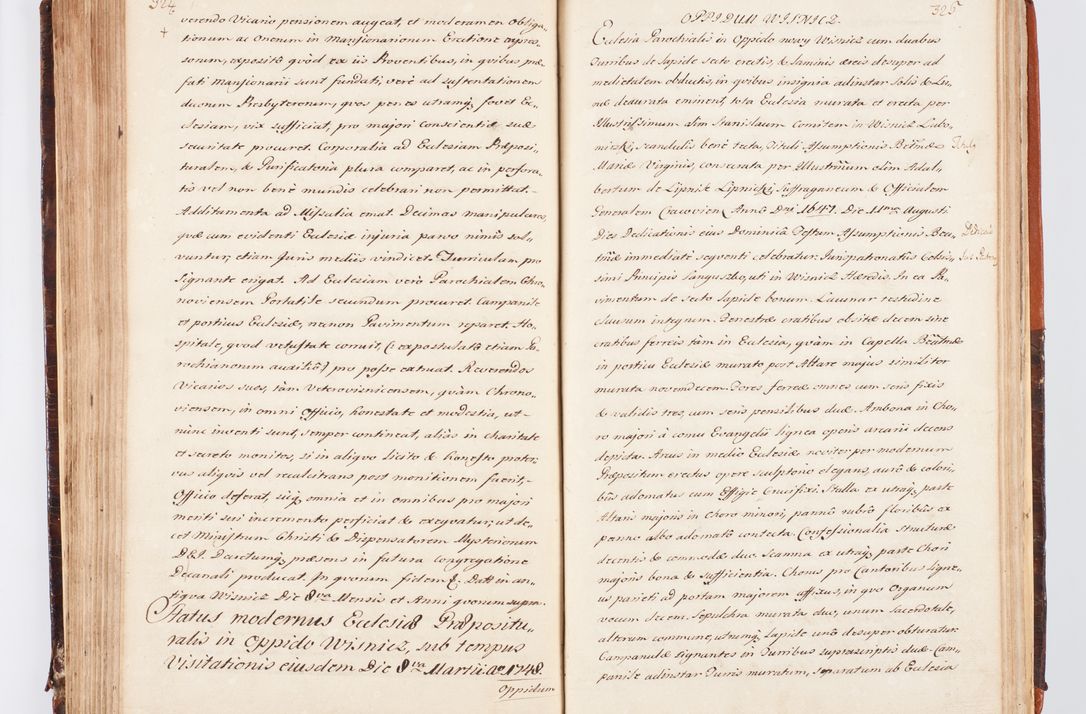 324
verendo Vicario pensionem augeat, et moderamen Obliga„
tionum ac Onerum in Mansionariorum Erectione expres„
sorum, exposità quòd ex iis Proventibus, in quibus præ
fati Mansionarii sunt fundati, verè ad sustentationem
duorum Presbyterorum, quos penes utramq; fovet Ec„
clesiam, vix sufficiat, pro majori Conscientiæ suæ
securitate procuret. Corporalia ad Ecclesiam Præposi„
turalem, & Purificatoria plura comparet, ac in perfora„
tis vel non benè mundis celebrari non permittat.
Additamenta ad Missalia emat. Decimas manipulares,
quæ cum evidenti Ecclesiæ injuria parvo nimis sol„
vuntur, etiam Juris mediis vindicet. Turriculam pro
Signante erigat. Ad Ecclesiam verò Parochialem Chro„
noviensem Portatile secundum procuret. Campanile
et porticus Ecclesiæ, necnon Pavimentum reparet. Ho„
spitale, quod vetustate corruit, (: expostulatâ etiam Pa„
rochianorum auxiliô:) pro posse extruat. Reverendos
Vicarios suos, tàm Veterovisnicensem, quàm Chrono„
viensem, in omni Officio, honestate et modestia, ut„
nunc inventi sunt, semper contineat, aliàs in charitate
et secreto monitos, si in aliquo licito & honesto proter„
vus aliquis vel recalcitrans post monitionem fuerit,
Officio deferat, sicq; omnia et in omnibus pro majori
meriti sui incremento perficiat & exequatur, ut de„
cet Ministrum Christi & Dispensatorem Mysteriorum
DEI. Decretumq; præsens in futura congregatione
Decanali producat. In quorum fidem &. Datt in an„
tiqva Wisnicz Die 8va Mensis et Anni quorum supra.
Status modernus Ecclesiæ Præpositu„
ralis in Oppido Wisnicz, sub tempus
Visitationis eiusdem Die 8va Martii Ao 1748.
Oppidum
325
OPPIDUM WISNICZ
Ecclesia Parochialis in Oppido novy Wisnicz cum duabus
Turribus de lapide secto erectis, & laminis æreis desuper ad
medietatem obductis, in quibus insignia adinstar Solis & Lu„
næ deaurata eminent, tota Ecclesia murata et erecta per
Illustrissimum olim Stanislaum Comitem in Wisnicz Lubo„
mirski, scandulis benè tecta, Tituli Assumptionis Bettmæ
Mariæ Virginis, consecrata per Illustrissimum olim Adal„
bertum de Lipnik Lipnicki, Suffraganeum & Officialem
Generalem Cracovien: Annô Dni 1647. Die 11ma Augusti.
Dies Dedicationis eius Dominicâ Festum Assumptionis Bea„
tmæ immediatè sequenti celebratur. Jurispatronatûs Celsis„
simi Principis Sanguszko, uti in Wisnicz Hæredis. In ea Pa„
vimentum de secto lapide bonum. Lacunar testudine
clausum integrum. Fenestræ cratibus obsitæ decem sine
cratibus ferreis tàm in Ecclesia, quàm in Capella Bettmæ
in porticu Ecclesiæ murato post Altare majus similiter
murata novendecem. Fores ferreæ omnes cum seris fixis
& validis tres, cum seris pensilibus duæ. Ambona in Cho„
ro majori à cornu Evangelii lignea operis arcarii decens
depicta. Arcus in medio Ecclesiæ noviter per modernum
Præpositum erectus opere sculptorio elegans, aurô & colori„
bus adornatus cum Effigie Crucifixi. Stalla ex utraq; parte
Altaris majoris in Choro minori, pannô rubrô floribus ex
panno albo adornatô contecta. Confessionalia structuræ
decentis & commodæ duo. Scamna ex utraq; parte Chori
majoris bona & sufficientia. Chorus pro Cantoribus ligne„
us parieti ad portam majorem affixus, in quo Organum
vocum decem. Sepulchra murata duo, unum Sacerdotale,
alterum commune, utrumq; lapide unô desuper obturatur.
Campanulæ Signantes in Turribus suprascriptis duæ. Cam„
panile adinstar Turris muratum, separatum ab Ecclesia